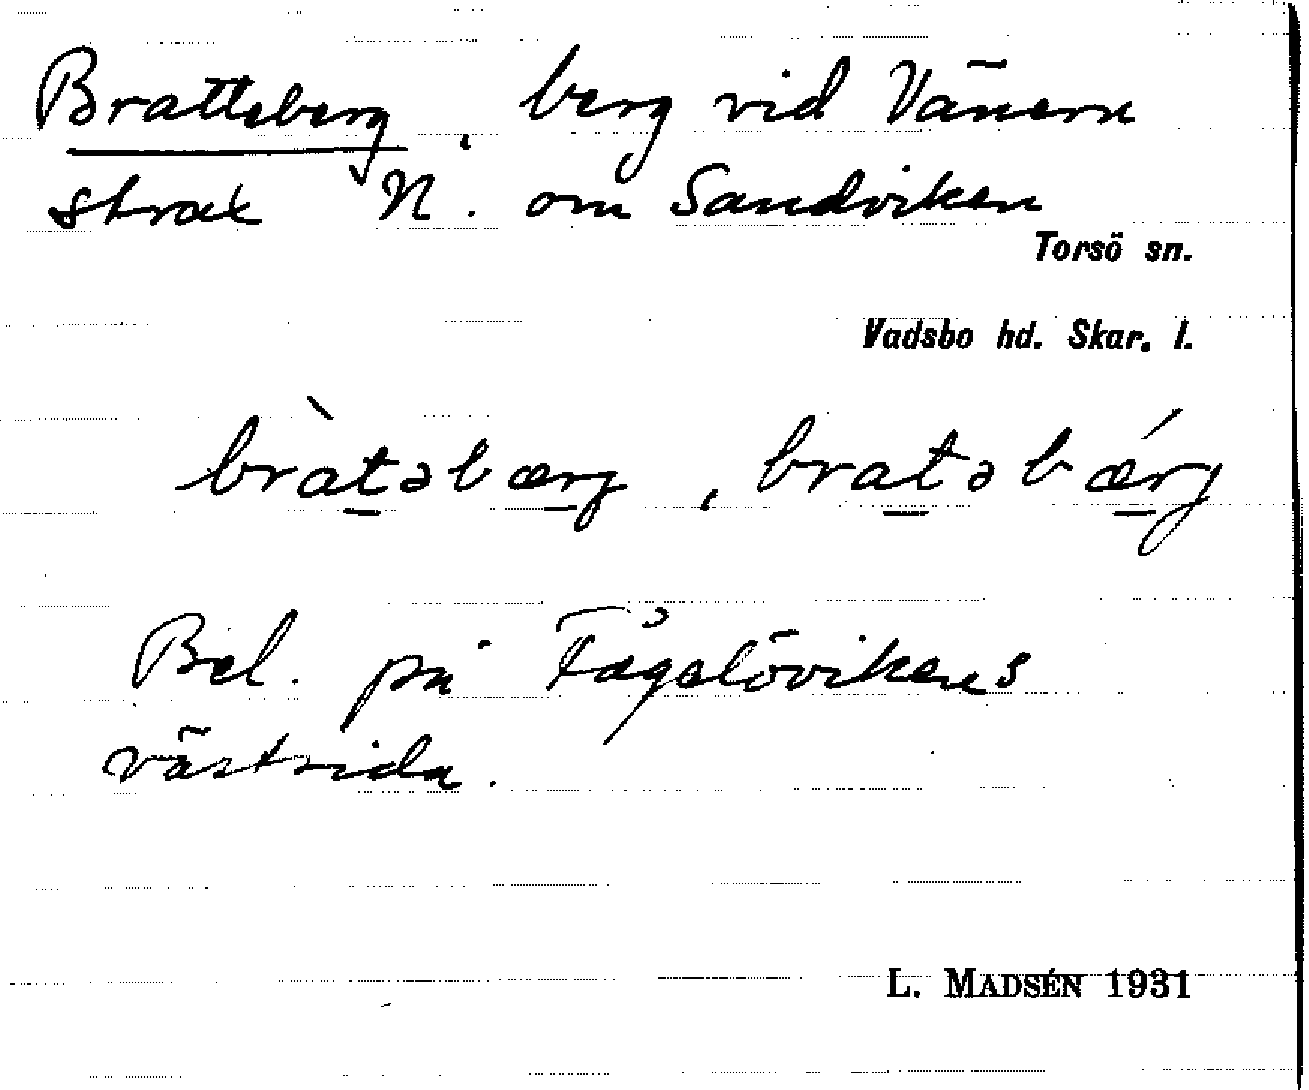 Bratteberg, berg vid Vänern
strax N. om Sandviken
Torsö sn.
Vadsbo hd. Skar. l.
bràt̲əbær̲g, brat̲əbǽr̲g
Bel. på Fågelövikens
västsida.
L. MADSÉN 1931